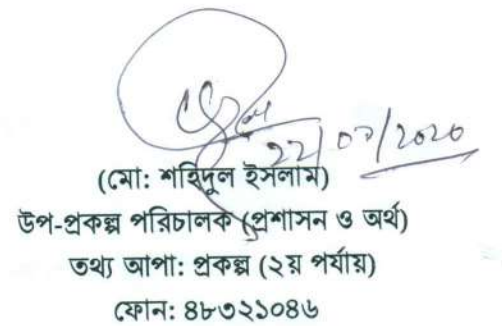 22/07/2020
(মো: শহিদুল ইসলাম)
উপ-প্রকল্প পরিচালক (প্রশাসন ও অর্থ)
তথ্য আপা: প্রকল্প (২য় পর্যায়)
ফোন: ৪৮৩২১০৪৬